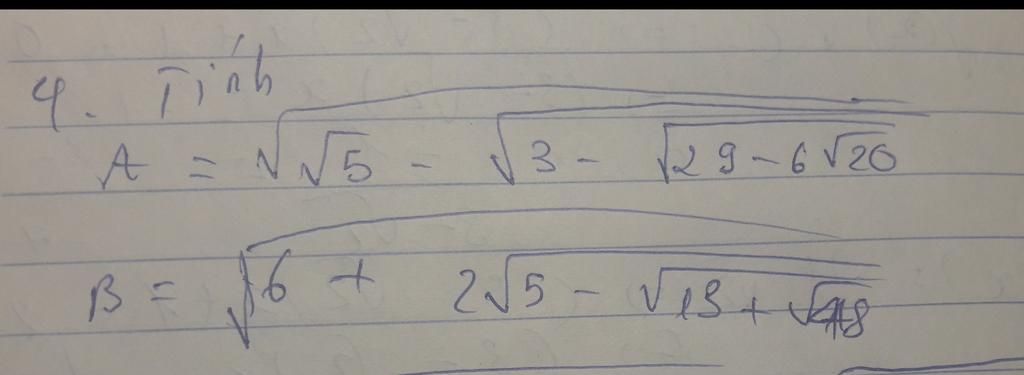 4. Tính
A = √(√5 - √(3 - √(29 - 6√20)))
B = √(6 + 2√(5 - √(13 + √48)))